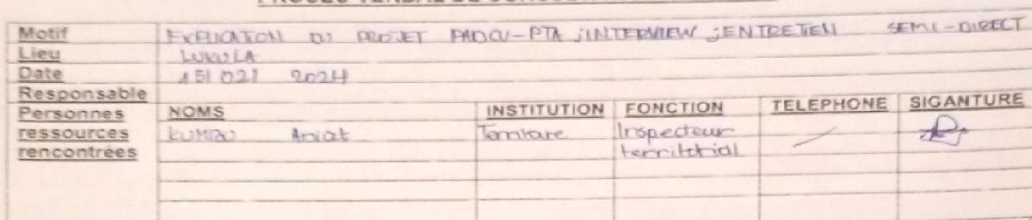 Motif EXPLICATION DU PROJET PADCV-PTA ; INTERVIEW ; ENTRETIEN SEMI-DIRECT
Lieu LUKULA
Date 15/02/ 2024
Responsable
Personnes ressources rencontrées
NOMS INSTITUTION FONCTION TELEPHONE SIGANTURE
Territoire Inspecteur territorial